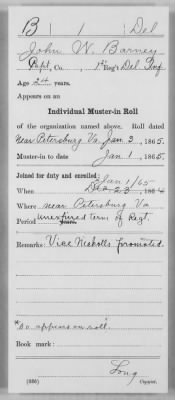 B | 1 | Del
John W. Barney
Capt, Co. , 1st Reg't Del Inf
Age 24 years.
Appears on an
Individual Muster-in Roll
of the organization named above. Roll dated
near Petersburg Va Jan 3, 1865.
Muster-in to date Jan 1, 1865.
Joined for duty and enrolled:
* Jan 1/65
When Dec 23, 1864
Where near Petersburg Va
Period unexpired term of Regt. years.
Remarks: Vice Nicholls promoted
*So appears on roll.
Book mark:
Long
(356) Copyist.